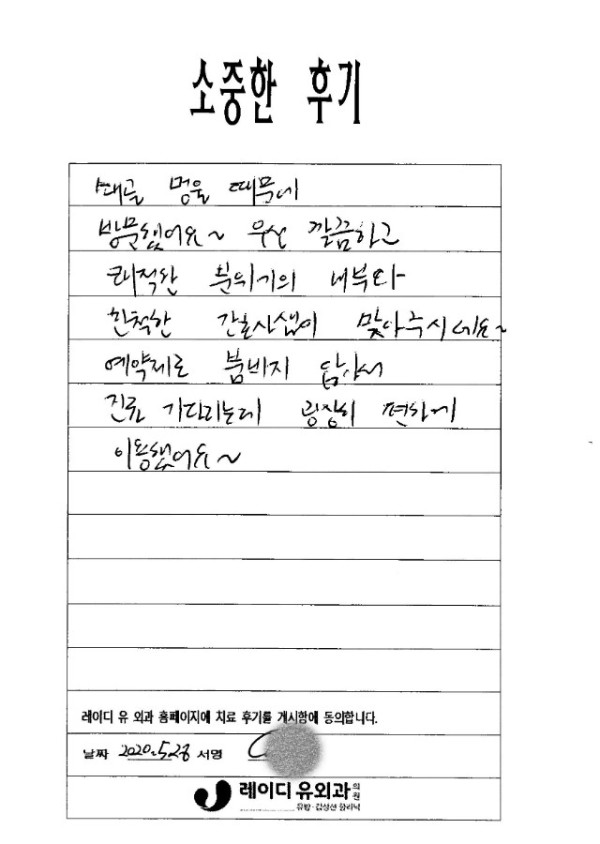 소중한 후기
멍울 때문에
방문했어요~ 우선 깔끔하고
쾌적한 분위기의 내부와
친척한 간호사샘이 맞아주시네요~
예약제로 붐비지 않아서
진료 기다리는데 굉장히 편하게
이용했어요~
레이디 유 외과 홈페이지에 치료 후기를 게시함에 동의합니다.
날짜 2020.5.28 서명
레이디 유외과 의원
유방·갑상선 클리닉